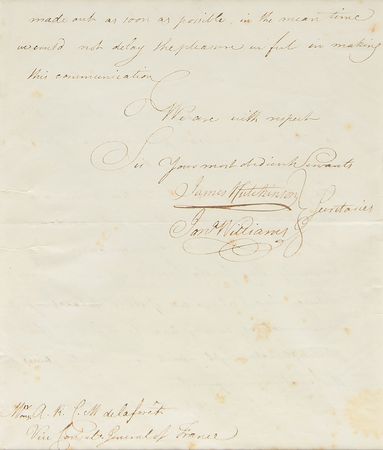 made out as soon as possible, in the mean time
we could not delay the pleasure we feel in making
this communication
We are with respect
Sir Your most obedient Servants
James Hutchinson
Secretaries
Jon. Williams
A. R. C. M. delaforêt
Vice Consul General of France